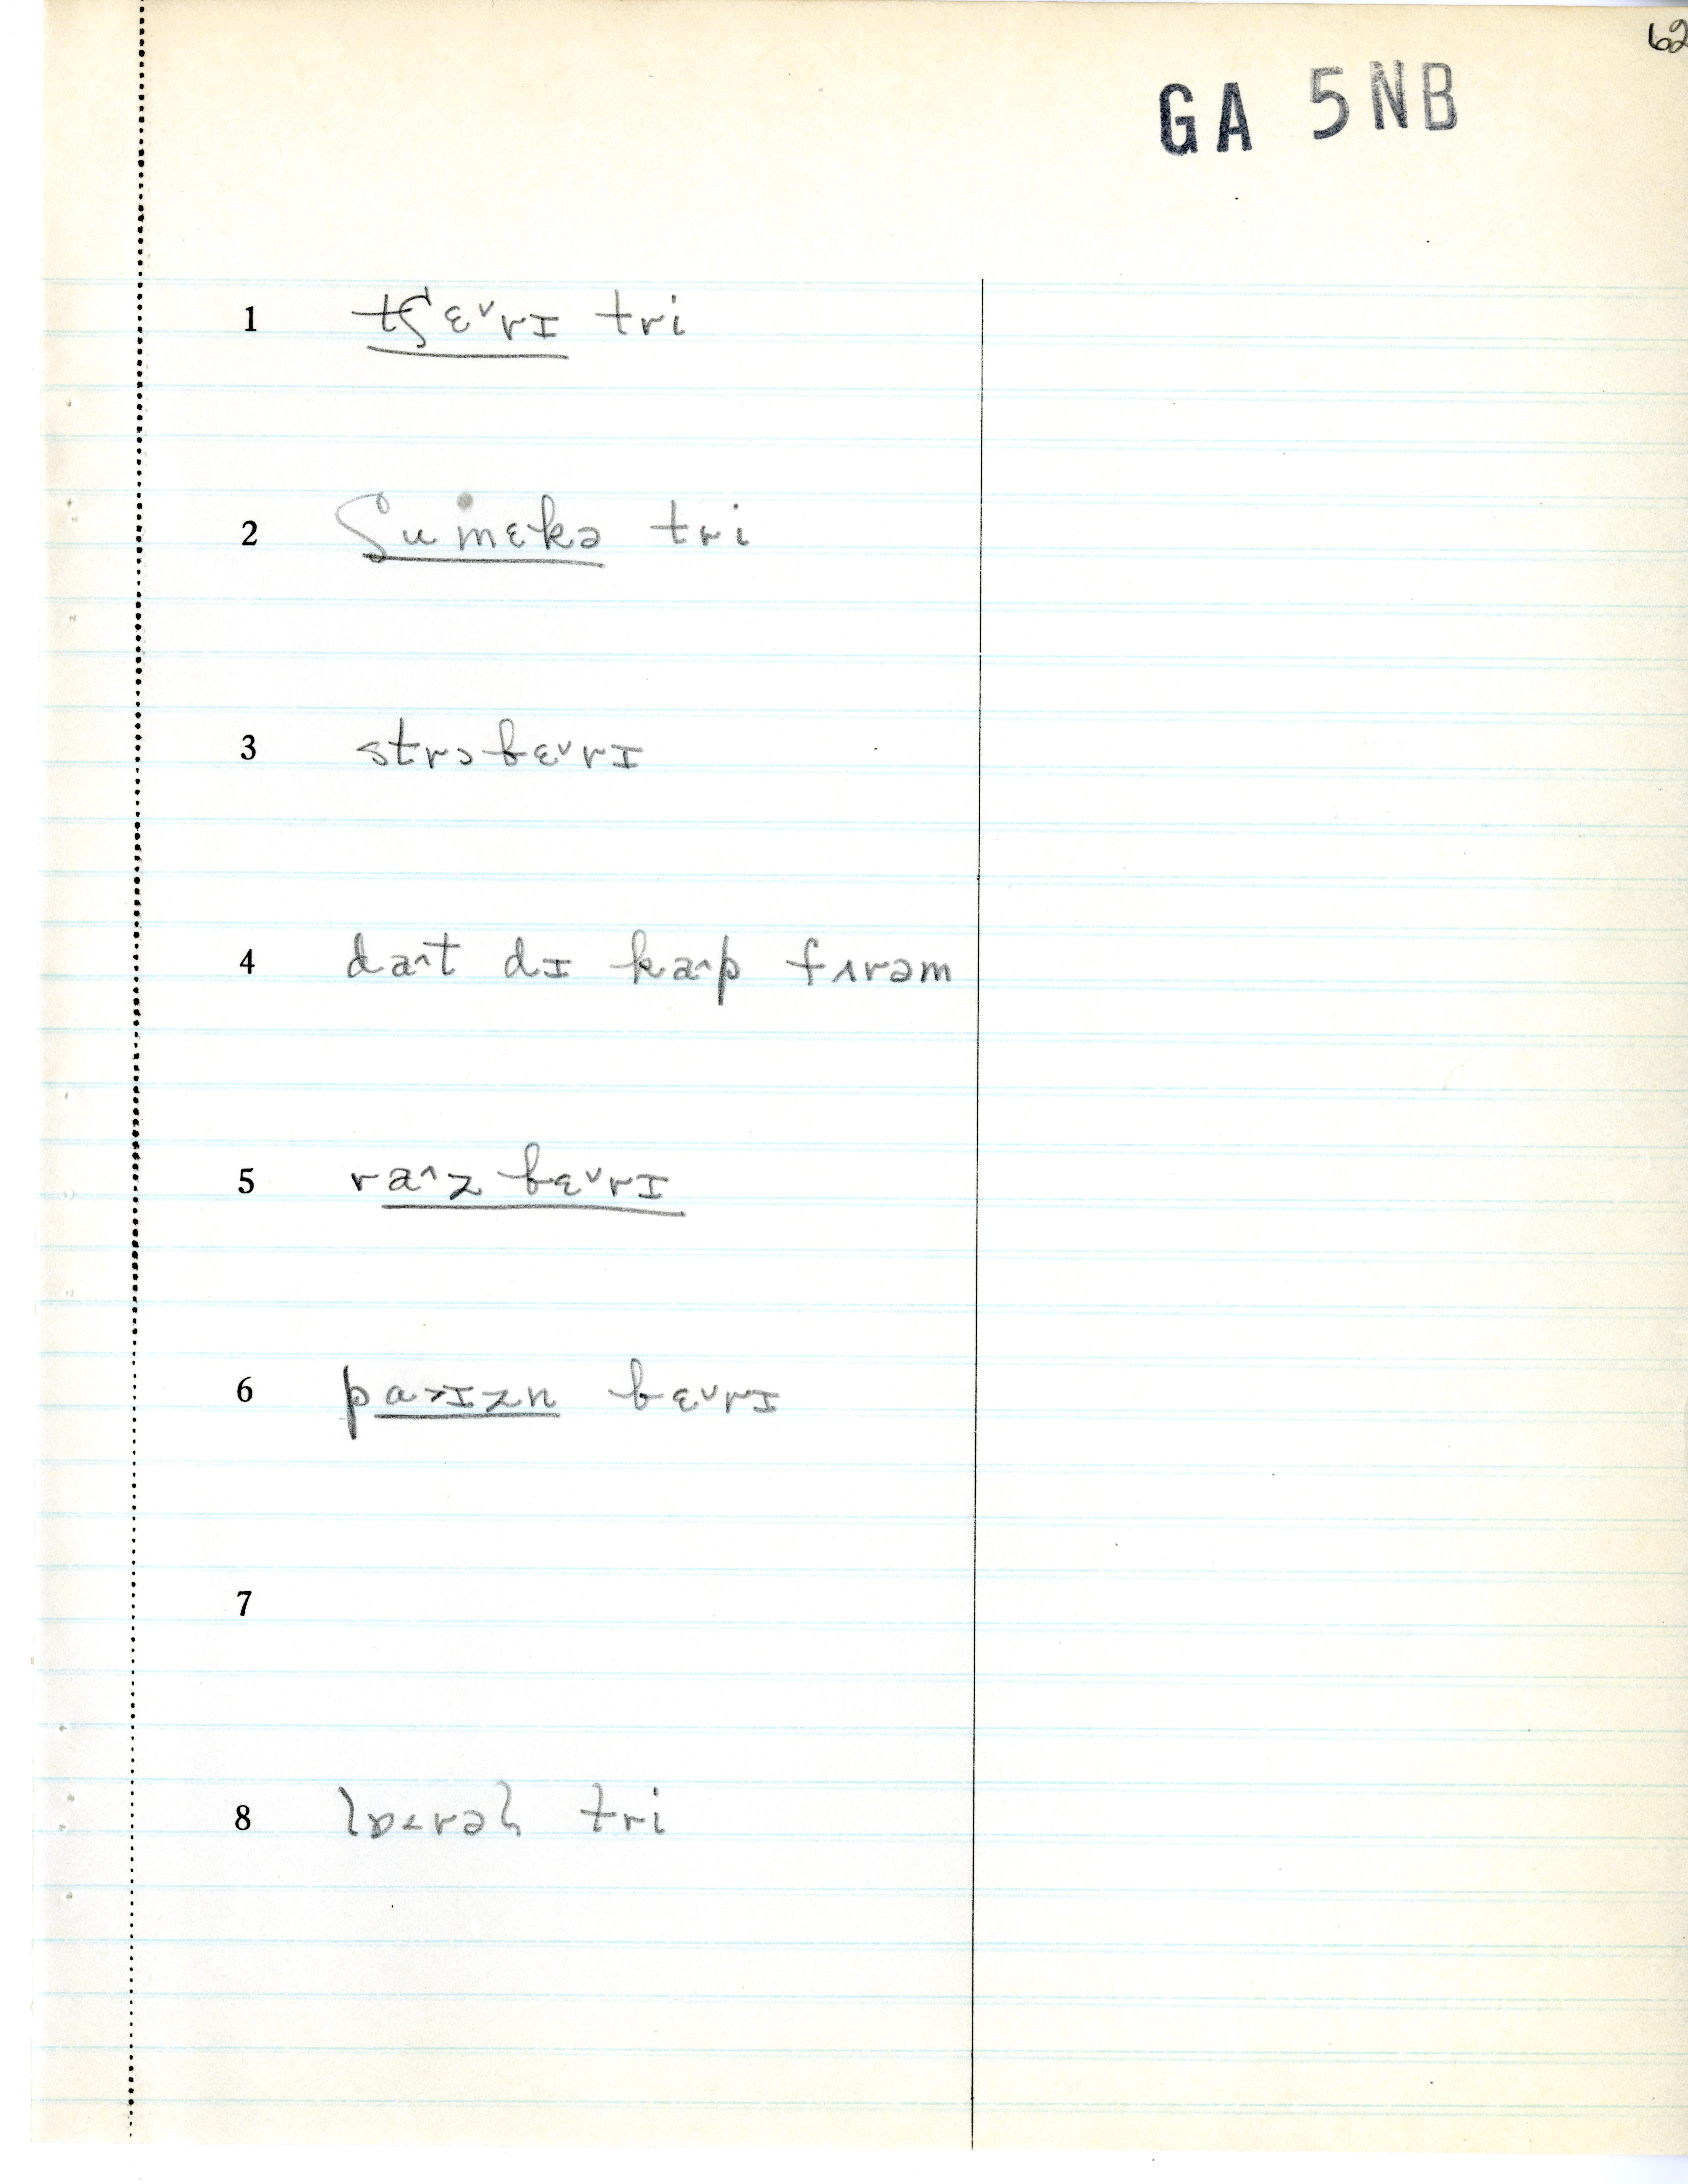 62
GA 5NB
1 tʃɛ˅rɪ tri
2 ʃumɛkə tri
3 strɔbɛ˅rɪ
4 da^t dɪ ka^p fʌrəm
5 ra^z bɛ˅rɪ
6 pɑ>ɪzn bɛ˅rɪ
7
8 lɒ<rəl tri